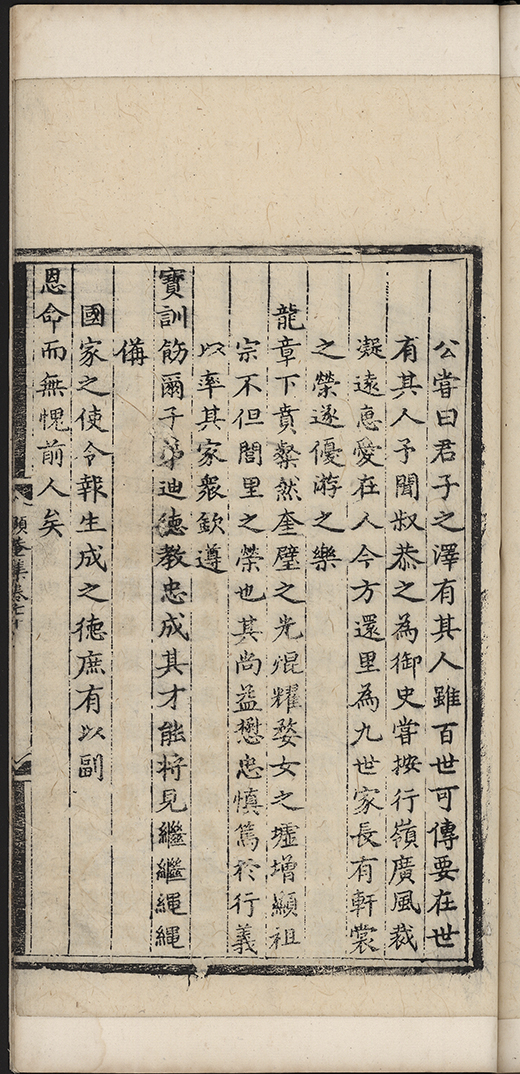 公嘗曰君子之澤有其人雖百世可傳要在世
有其人予聞叔恭之為御史嘗按行嶺廣風裁
凝遠惠愛在人今方還里為九世家長有軒裳
之榮遂優游之樂
龍章下賁粲然奎璧之光焜耀婺女之墟增顯祖
宗不但閭里之榮也其尚益懋忠慎篤於行義
以率其家衆欽遵
寶訓飭爾子弟迪德教忠成其才能將見繼繼繩繩
備
國家之使令報生成之德庶有以副
恩命而無愧前人矣
頤菴集卷之十